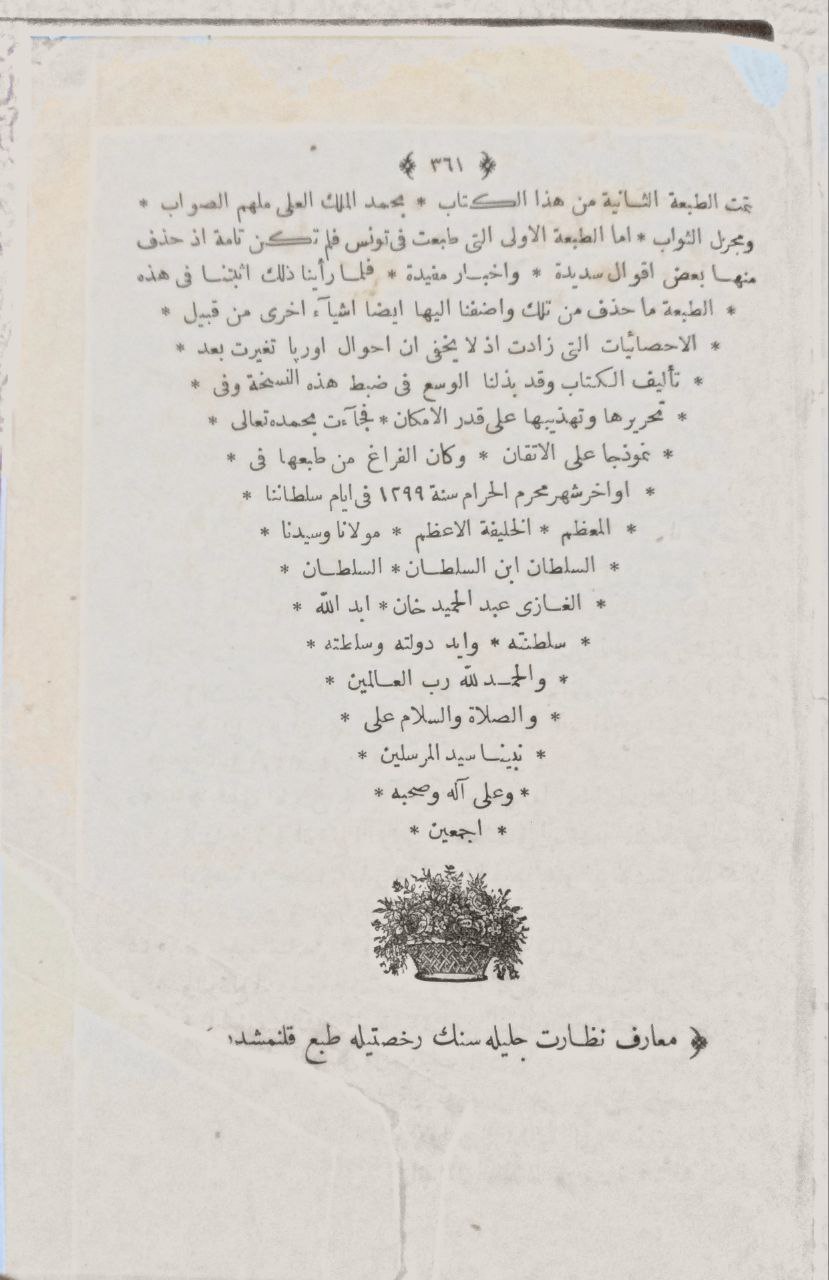 ﴿ ٣٦١ ﴾
تمت الطبعة الثانية من هذا الكتاب * بحمد الملك العلى ملهم الصواب *
ومجزل الثواب * اما الطبعة الاولى التى طبعت فى تونس فلم تكن تامة اذ حذف
منها بعض اقوال سديدة * واخبار مفيدة * فلما رأينا ذلك اثبتنا فى هذه
* الطبعة ما حذف من تلك واضفنا اليها ايضا اشيآء اخرى من قبيل *
* الاحصائيات التى زادت اذ لا يخفى ان احوال اوربا تغيرت بعد *
* تأليف الكتاب وقد بذلنا الوسع فى ضبط هذه النسخة وفى *
* تحريرها وتهذيبها على قدر الامكان * فجآءت بحمده تعالى *
* نموذجا على الاتقان * وكان الفراغ من طبعها فى *
* اواخر شهر محرم الحرام سنة ١٢٩٩ فى ايام سلطاننا *
* المعظم * الخليفة الاعظم * مولانا وسيدنا *
* السلطان ابن السلطان * السلطان *
* الغازى عبد الحميد خان * ابد الله *
* سلطنته * وايد دولته وسلطته *
* والحمد لله رب العالمين *
* والصلاة والسلام على *
* نبينا سيد المرسلين *
* وعلى آله وصحبه *
* اجمعين *
﴿ معارف نظارت جليله سنك رخصتيله طبع قلنمشدر